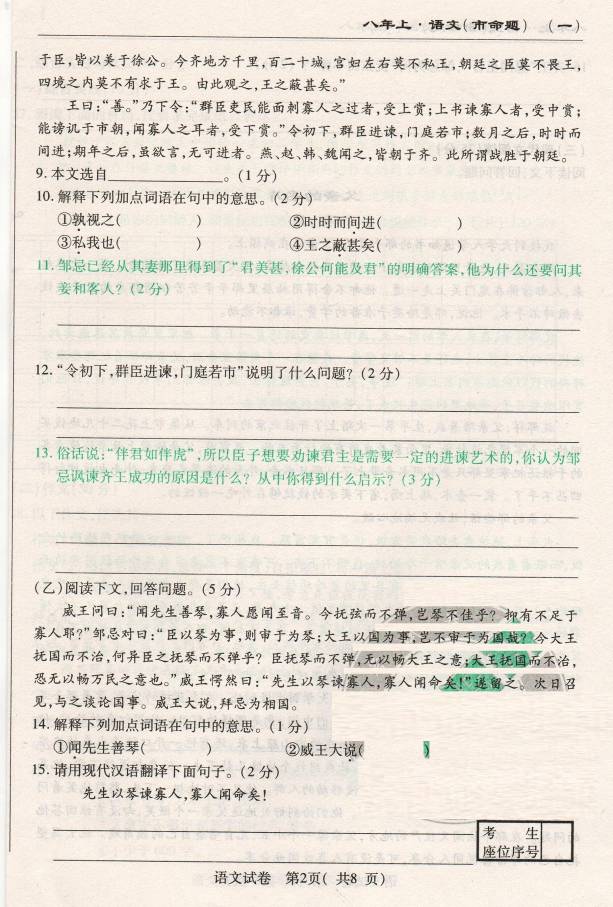 八年上·语文(市命题) (一)
于臣,皆以美于徐公。今齐地方千里,百二十城,宫妇左右莫不私王,朝廷之臣莫不畏王,
四境之内莫不有求于王。由此观之,王之蔽甚矣。”
王曰:“善。”乃下令:“群臣吏民能面刺寡人之过者,受上赏;上书谏寡人者,受中赏;
能谤讥于市朝,闻寡人之耳者,受下赏。”令初下,群臣进谏,门庭若市;数月之后,时时而
间进;期年之后,虽欲言,无可进者。燕、赵、韩、魏闻之,皆朝于齐。此所谓战胜于朝廷。
9.本文选自 。(1分)
10.解释下列加点词语在句中的意思。(2分)
①孰视之( ) ②时时而间进( )
③私我也( ) ④王之蔽甚矣( )
11.邹忌已经从其妻那里得到了“君美甚,徐公何能及君”的明确答案,他为什么还要问其
妾和客人?(2分)
12.“令初下,群臣进谏,门庭若市”说明了什么问题?(2分)
13.俗话说:“伴君如伴虎”,所以臣子想要劝谏君主是需要一定的进谏艺术的,你认为邹
忌讽谏齐王成功的原因是什么?从中你得到什么启示?(3分)
(乙)阅读下文,回答问题。(5分)
威王问曰:“闻先生善琴,寡人愿闻至音。今抚弦而不弹,岂琴不佳乎?抑有不足于
寡人耶?”邹忌对曰:“臣以琴为事,则审于为琴;大王以国为事,岂不审于为国哉?今大王
抚国而不治,何异臣之抚琴而不弹乎?臣抚琴而不弹,无以畅大王之意;大王抚国而不治,
恐无以畅万民之意也。”威王愕然曰:“先生以琴谏寡人,寡人闻命矣!”遂留之。次日召
见,与之谈论国事。威王大说,拜忌为相国。
14.解释下列加点词语在句中的意思。(1分)
①闻先生善琴( ) ②威王大说( )
15.请用现代汉语翻译下面句子。(2分)
先生以琴谏寡人,寡人闻命矣!
考 生
座位序号
语文试卷 第2页( 共8 页)